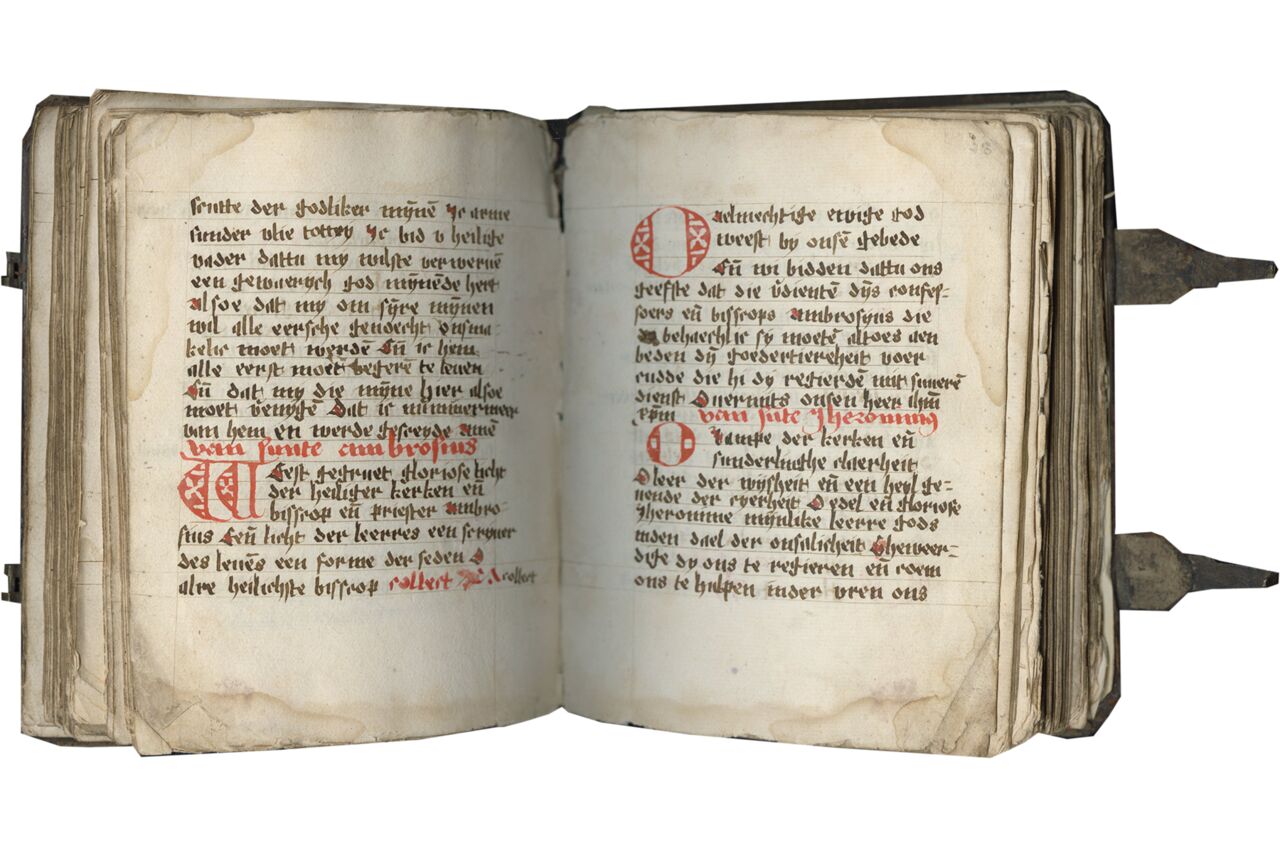 scutte der godliker mȳnē Jc arme
sunder vlie tottey Jc bid v heilige
vader dattu my wilste verwervē
een gewaerych god mȳnēde hert
alsoe dat my om sȳre mȳnen
wil alle eersche genoecht onsma-
kelic moet werdē Eñ ic hem
alle eerst moet begere te leuen
Eñ dat my die mȳne hier alsoe
moet Dat is nummermeer
van hem en werde Amē
van sunte ambrosius
Weest gegruet gloriose licht
der heiliger kerken eñ
bisscop eñ priester Ambro-
sius Eeñ licht der leerres een
des leuēs een forme der seden O
alre heilichste bisscop collect
O aelmechtige ewige god
weest by onsē gebede
Eñ wi bidden dattu ons
geefste dat die dȳs confes-
soers eñ bisscops Ambrosyus die
behaechlic sy moetē altoes den
beden dȳ goedertierenheit voer
die hi dy regierdē mit
dienst Ouermits onsen heer ihm̄
xp̄m van sūte Jheronimus
O lampe der kerken eñ
sunderlinghe claerheit
O leer der wijsheit eñ een heyl ge-
der O edel eñ gloriose
Jheronime mynlike leerre gods
inden dael der onsalicheit Gheweer-
dige dy ons te regieren eñ coem
ons te hulpen inder vren ons